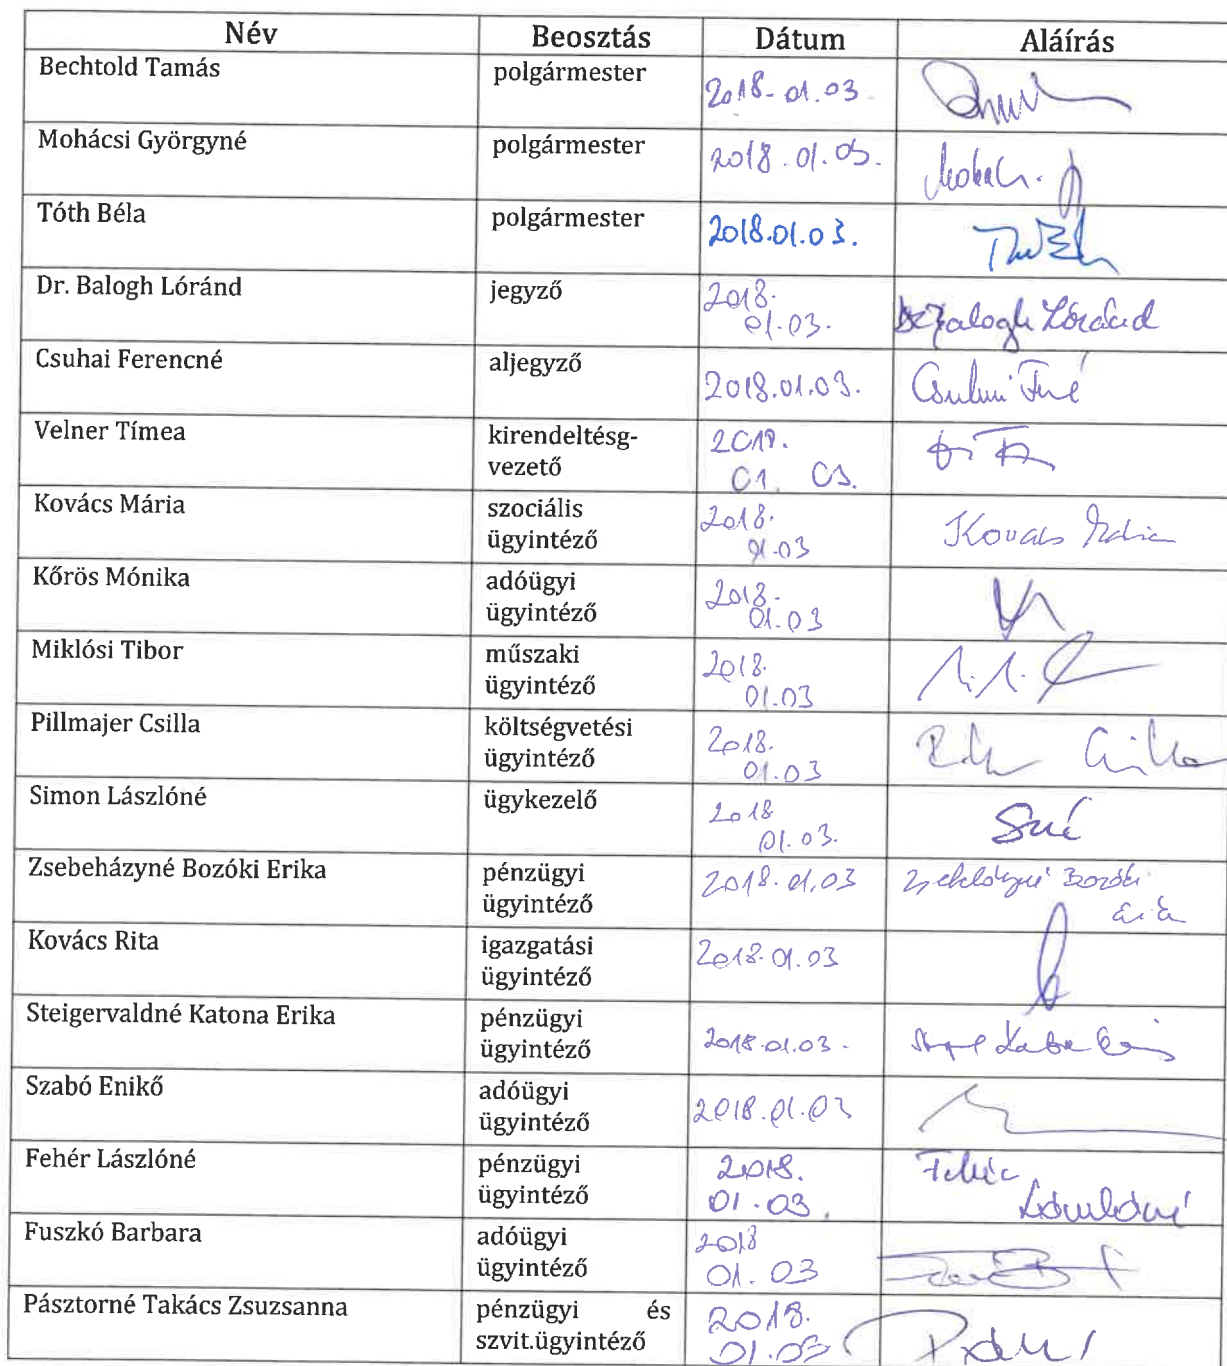 Név Beosztás Dátum Aláírás
Bechtold Tamás polgármester 2018-01.03.
Mohácsi Györgyné polgármester 2018.01.03.
Tóth Béla polgármester 2018.01.03.
Dr. Balogh Lóránd jegyző 2018.
01.03. Balogh Lóránd
Csuhai Ferencné aljegyző 2018.01.03.
Velner Tímea kirendeltésg- 2018.
vezető 01. 03.
Kovács Mária szociális 2018.
ügyintéző 01.03 Kovács Mária
Kőrös Mónika adóügyi 2018.
ügyintéző 01.03
Miklósi Tibor műszaki 2018.
ügyintéző 01.03
Pillmajer Csilla költségvetési 2018.
ügyintéző 01.03 Csilla
Simon Lászlóné ügykezelő 2018
01.03. Sné
Zsebeházyné Bozóki Erika pénzügyi 2018.01.03 Zsebeházyné Bozóki
ügyintéző Erika
Kovács Rita igazgatási 2018.01.03
ügyintéző
Steigervaldné Katona Erika pénzügyi
ügyintéző 2018.01.03.
Szabó Enikő adóügyi
ügyintéző 2018.01.03
Fehér Lászlóné pénzügyi 2018. Fehér
ügyintéző 01.03. Lászlóné
Fuszkó Barbara adóügyi 2018
ügyintéző 01.03
Pásztorné Takács Zsuzsanna pénzügyi és 2018.
szvit.ügyintéző 01.03